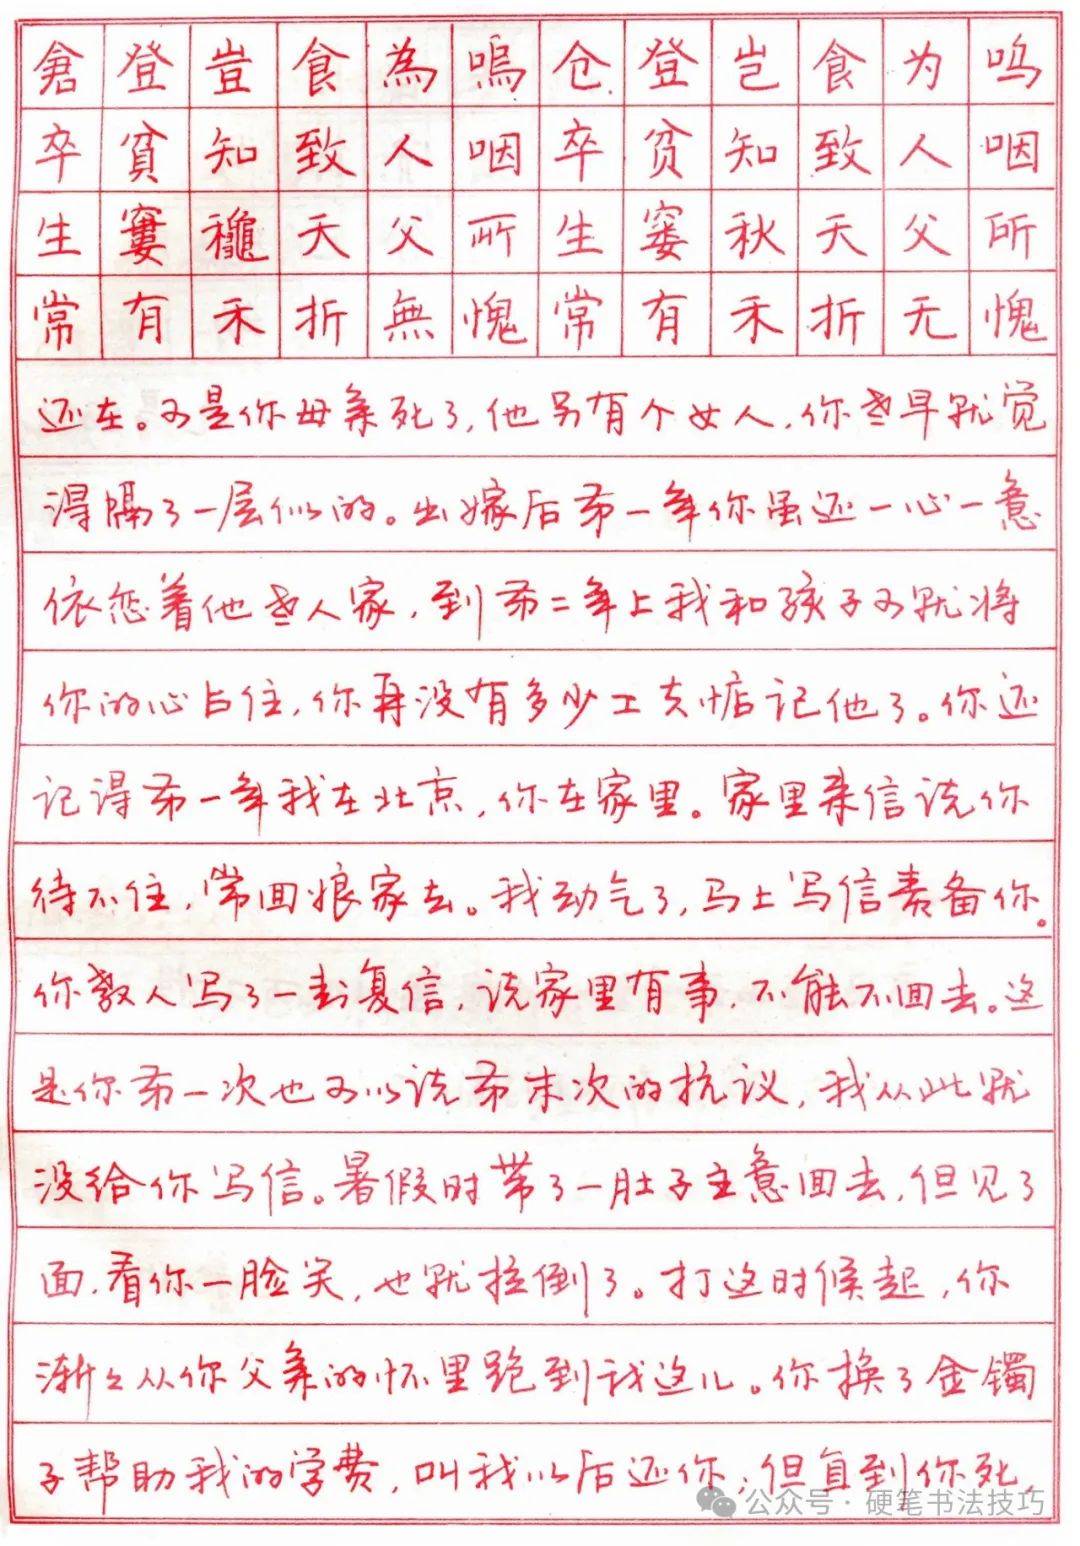 倉登豈食為嗚仓登岂食为呜
卒貧知致人咽卒贫知致人咽
生窶龝天父所生窭秋天父所
常有禾折無愧常有禾折无愧
还在。可是你母亲死了,他另有个女人,你老早就觉
得隔了一层似的。出嫁后第一年你虽还一心一意
依恋着他老人家,到第二年上我和孩子可就将
你的心占住,你再没有多少工夫惦记他了。你还
记得第一年我在北京,你在家里。家里来信说你
待不住,常回娘家去。我动气了,马上写信责备你。
你教人写了一封复信,说家里有事,不能不回去。这
是你第一次也可以说第末次的抗议,我从此就
没给你写信。暑假时带了一肚子主意回去,但见了
面,看你一脸笑,也就拉倒了。打这时候起,你
渐々从你父亲的怀里跑到我这儿。你换了金镯
子帮助我的学费,叫我以后还你;但直到你死,
公众号·硬笔书法技巧